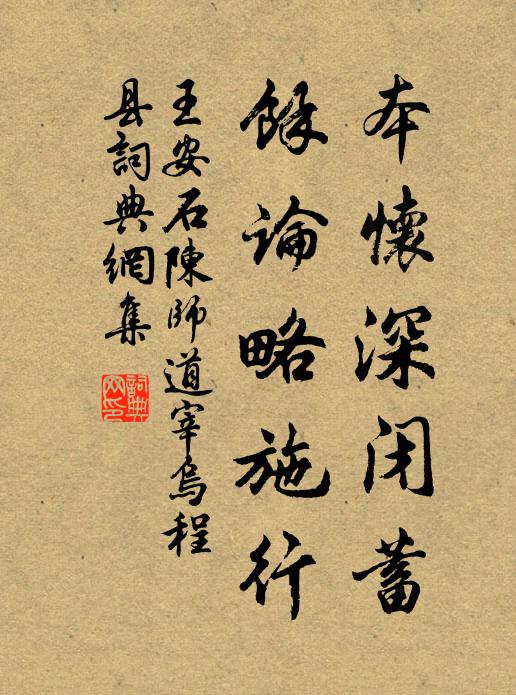 本懷深闭蓄
餘論略施行
王安石陳師道宰烏程
县詞典網集
詞典
网印